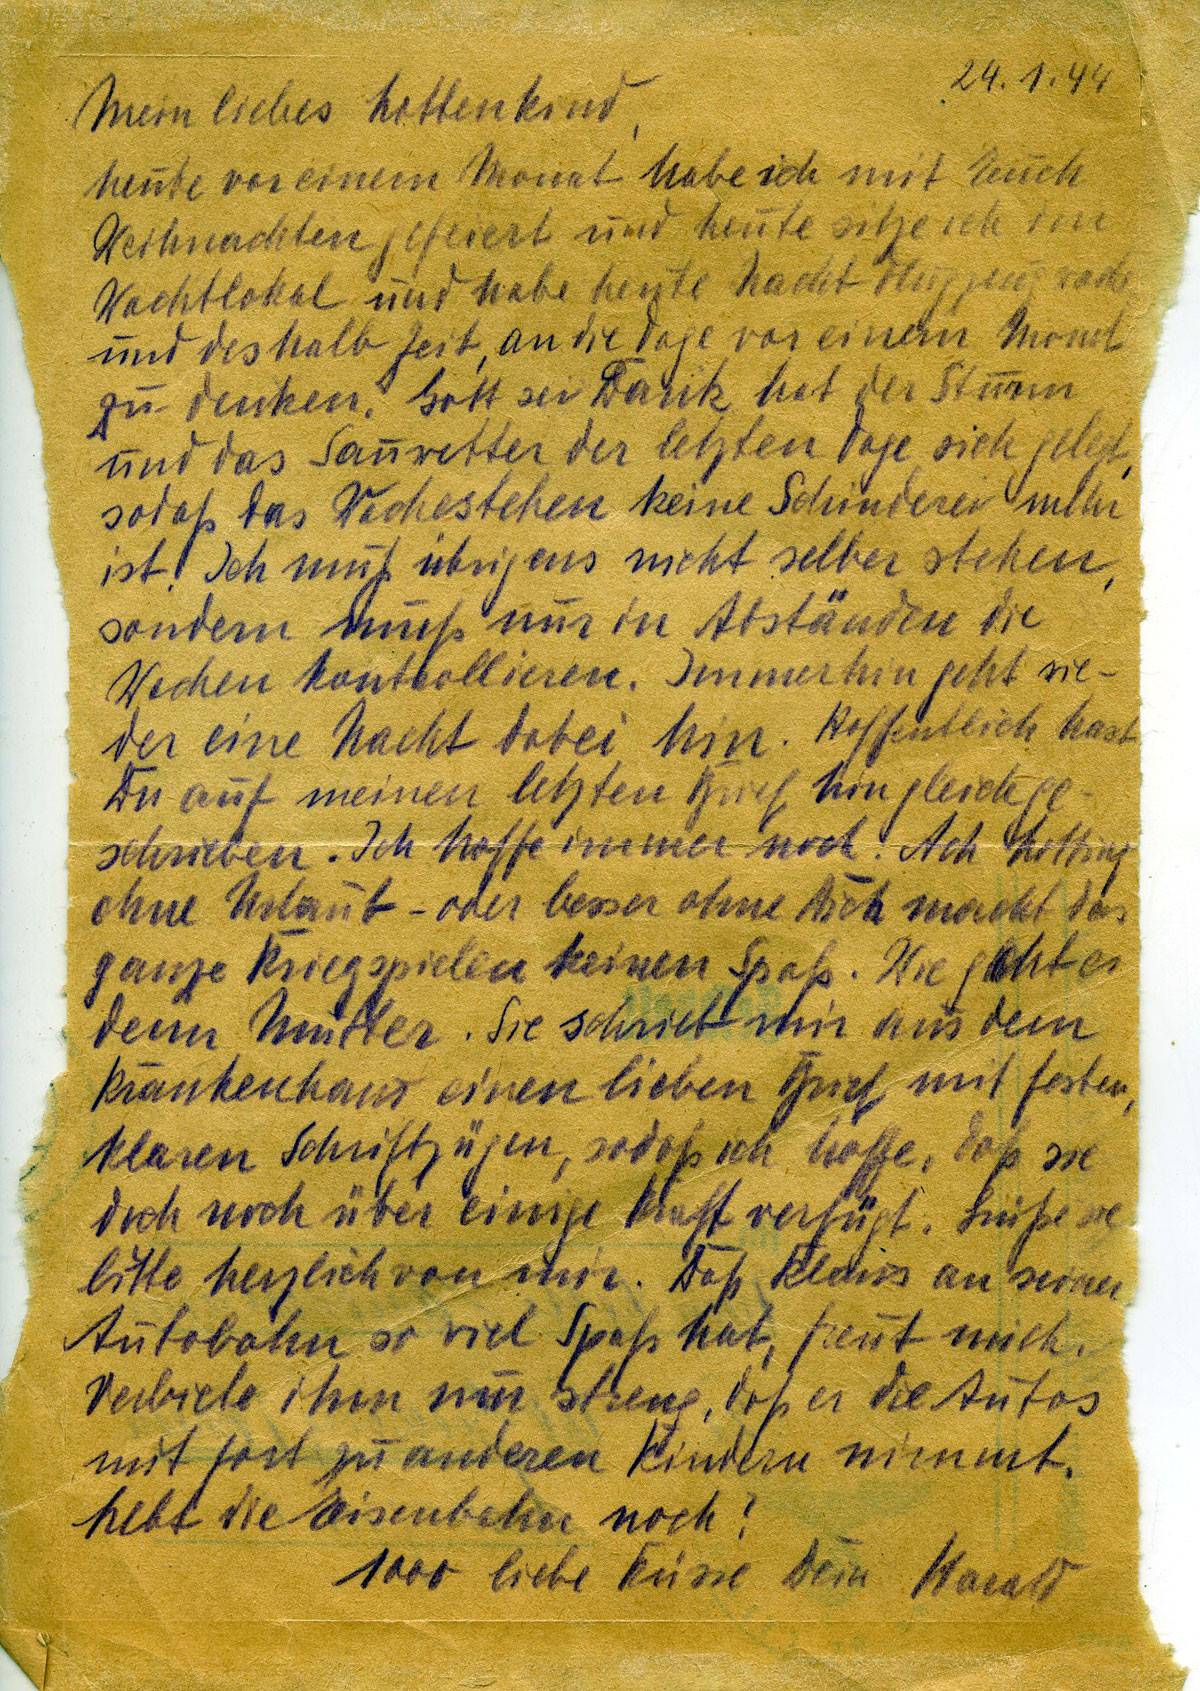 24.1.44
Mein liebes Lottenkind,
heute vor einem Monat habe ich mit Euch
Weihnachten gefeiert und heute sitze ich im
Wachtlokal und habe heute Nacht Flugzeugwache
und deshalb Zeit, an die Tage vor einem Monat
zu denken. Gott sei Dank hat der Sturm
und das Sauwetter der letzten Tage sich gelegt,
sodaß das Wachestehen keine Schinderei mehr
ist. Ich muß übrigens nicht selber stehen,
sondern muß nur in Abständen die
Wachen kontrollieren. Immerhin geht wie-
der eine Nacht dabei hin. Hoffentlich hast
Du auf meinen letzten Brief hin gleich ge-
schrieben. Ich hoffe immer noch! Ach Lotting
ohne Urlaub - oder besser ohne Dich macht das
ganze Kriegspielen keinen Spaß. Wie geht es
denn Mutter. Sie schrieb mir aus dem
Krankenhaus einen lieben Brief mit festen,
klaren Schriftzügen, sodaß ich hoffe, daß sie
doch noch über einige Kraft verfügt. Grüße sie
bitte herzlich von mir. Daß Klaus an seiner
Autobahn so viel Spaß hat, freut mich.
Verbiete ihm nur streng, daß er die Autos
mit fort zu anderen Kindern nimmt.
Lebt die Eisenbahn noch?
1000 liebe Küsse Dein Harald